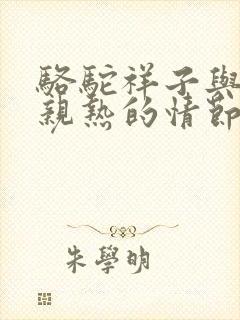 駱駝祥子與
親熱的情節
朱學明